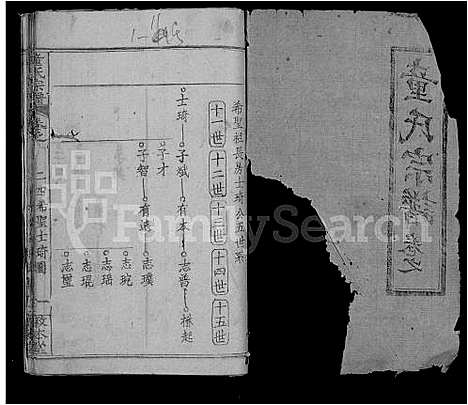 董氏宗譜
希聖祖長房士琦公五世系
十一世 十二世 十三世 十四世 十五世
士琦 子斌 有本 志普 林起
子才
子智 有遠 志璞
志琬
志瑶
志琨
志璽
董氏宗譜
二四希聖士琦圖
敦本堂
FamilySearch